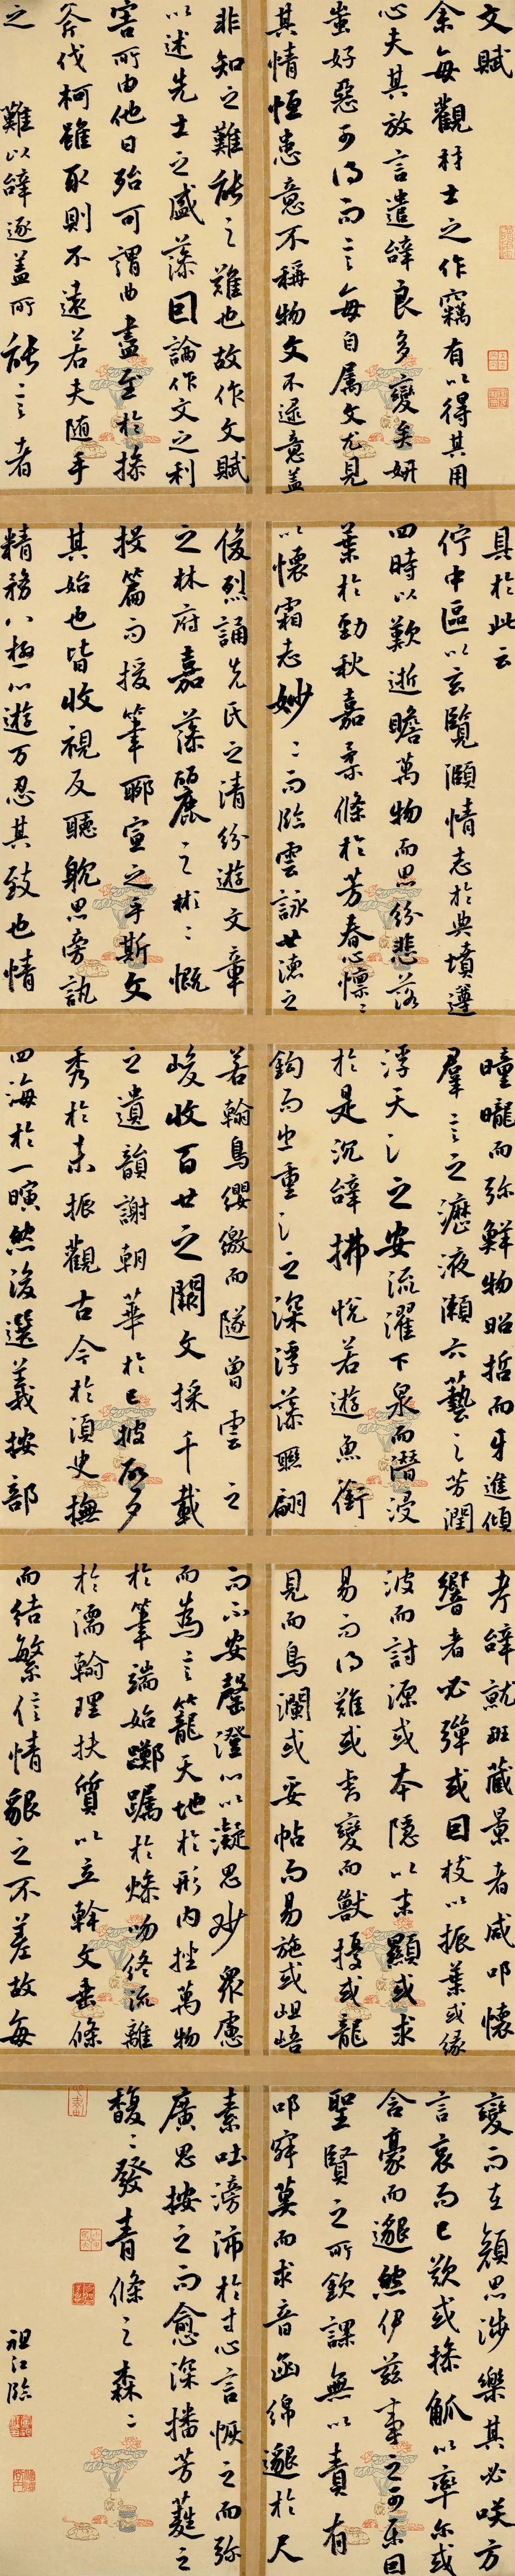 文賦
余每觀材士之作竊有以得其用
心夫其放言遣辭良多變矣妍
蚩好惡可得而言每自屬文尤見
其情恒患意不稱物文不逮意蓋
非知之難能之難也故作文賦
以述先士之盛藻因論作文之利
害所由他日殆可謂曲盡至於操
斧伐柯雖取則不遠若夫隨手
之難以辭逐蓋所能言者
具於此云
佇中區以玄覽頤情志於典墳遵
四時以歎逝瞻萬物而思紛悲落
葉於勁秋嘉柔條於芳春心懍〻
以懷霜志妙〻而臨雲詠世德之
俊烈誦先民之清紛遊文章
之林府嘉藻麗之彬〻慨
投篇而援筆聊宣之乎斯文
其始也皆收視反聽耽思旁訊
精務八極心遊万忍其致也情
曈曨而弥鮮物昭晢而互進傾
羣言之瀝液漱六藝之芳潤
浮天淵之安流濯下泉而潛浸
於是沉辭怫悅若遊魚銜
鉤而出重淵之深浮藻聯翩
若翰鳥纓繳而墜曾雲之
峻收百世之闕文採千載
之遺韻謝朝華於已披啟夕
秀於未振觀古今於須臾撫
四海於一瞬然後選義按部
考辭就班藏景者咸叩懷
響者必彈或因枝以振葉或緣
波而討源或本隱以末顯或求
易而得難或虎變而獸擾或龍
見而鳥瀾或妥帖而易施或岨峿
而不安罄澄心以凝思眇衆慮
而為言籠天地於形內挫萬物
於筆端始躑躅於燥吻終流離
於濡翰理扶質以立幹文垂條
而結繁信情貌之不差故每
變而在顏思涉樂其必咲方
言哀而已歎或操觚以率尔或
含豪而邈然伊茲事之可樂固
聖賢之所欽課無以責有
叩寂莫而求音函綿邈於尺
素吐滂沛於寸心言恢之而弥
廣思按之而愈深播芳蕤之
馥〻發青條之森〻
祖江臨